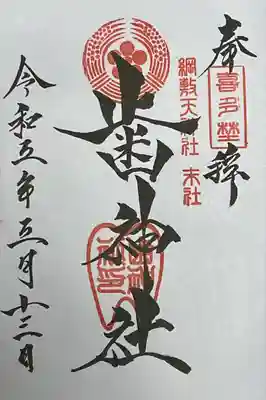 奉拝
喜多埜
綱敷天神社 末社
歯神社
令和五年三月十三日